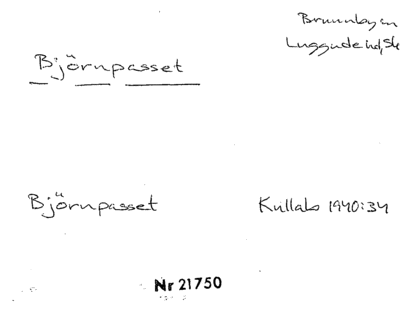 Brunnbyen
Luggude hd, Sk
Björnpasset
Björnpasset
Kullabs 1940:34
Nr 21750